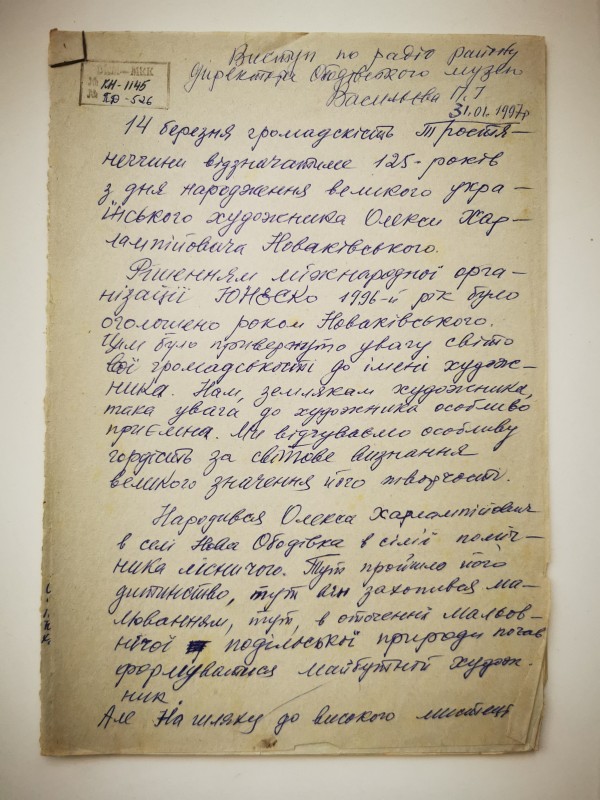 КН-1145
ПД-526
Виступ по радіо району
директора Ободівського музею
Васильєва П.І
31.01.1997р
14 березня громадскість Тростя-
неччини відзначатиме 125-років
з дня народження великого укра-
їнського художника Олекси Хар-
лампійовича Новаківського.
Рішенням міжнародної орга-
нізації ЮНЕСКО 1996-й рік було
оголошено роком Новаківського.
Цим було привернуто увагу світо
вої громадськості до імені худож-
ника. Нам, землякам художника,
така увага до художника особливо
приємна. Ми відчуваємо особливу
гордість за світове визнання
великого значення його творчості.
Народився Олекса Харлампійович
в селі Нова Ободівка в сімії поміч-
ника лісничого. Тут пройшло його
дитинство, тут він захопився ма-
люванням, тут, в оточенні мальов-
нічої подільської природи почав
формуватися майбутній худож-
ник.
Але на шляху до високого мистецт